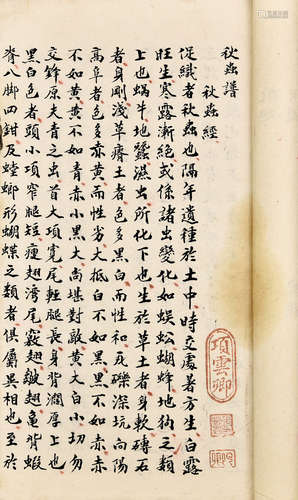 秋蟲譜
秋蟲經
促織者秋蟲也隔年遺種於土中時交處暑方生白露
旺生寒露漸絕或係諸出變化如蜈蚣蝴蜂地蚋之類
上也蝸牛地蠶濕出所化下也生於草土者身軟磚石
者身剛淺草瘠土者色多黑白而性和灰礫深坑向陽
高阜者色多赤黃而性劣大抵白不如黑黑不如赤赤
不如黃黃不如青赤小黑大尚堪對敵黃大白小切勿
交鋒原夫青之虫首大項寬尾輕腿長身背濶厚上也
黑白色者頭小項窄腿短瘦翅灣尾竅翅皺翅龜背蝦
脊八脚四鉗及螳螂形蝴蝶之類者俱屬異相也至於
項雲卿